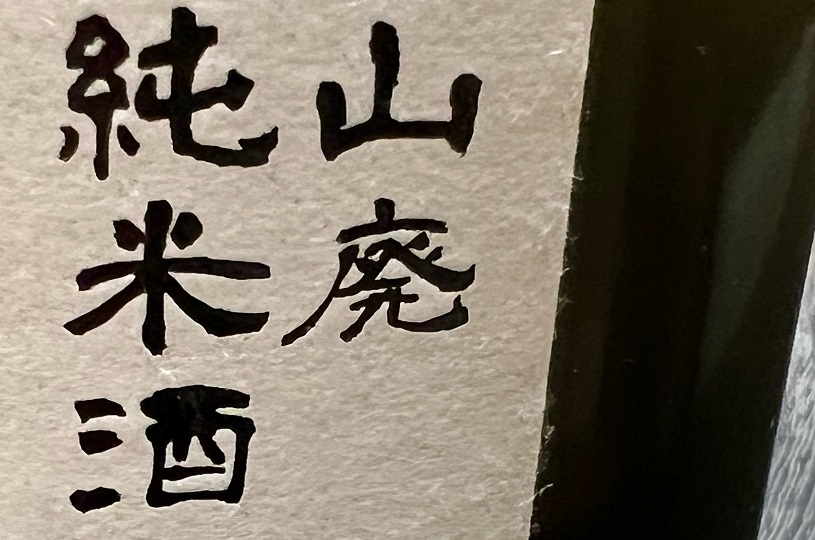 山廃
純米酒